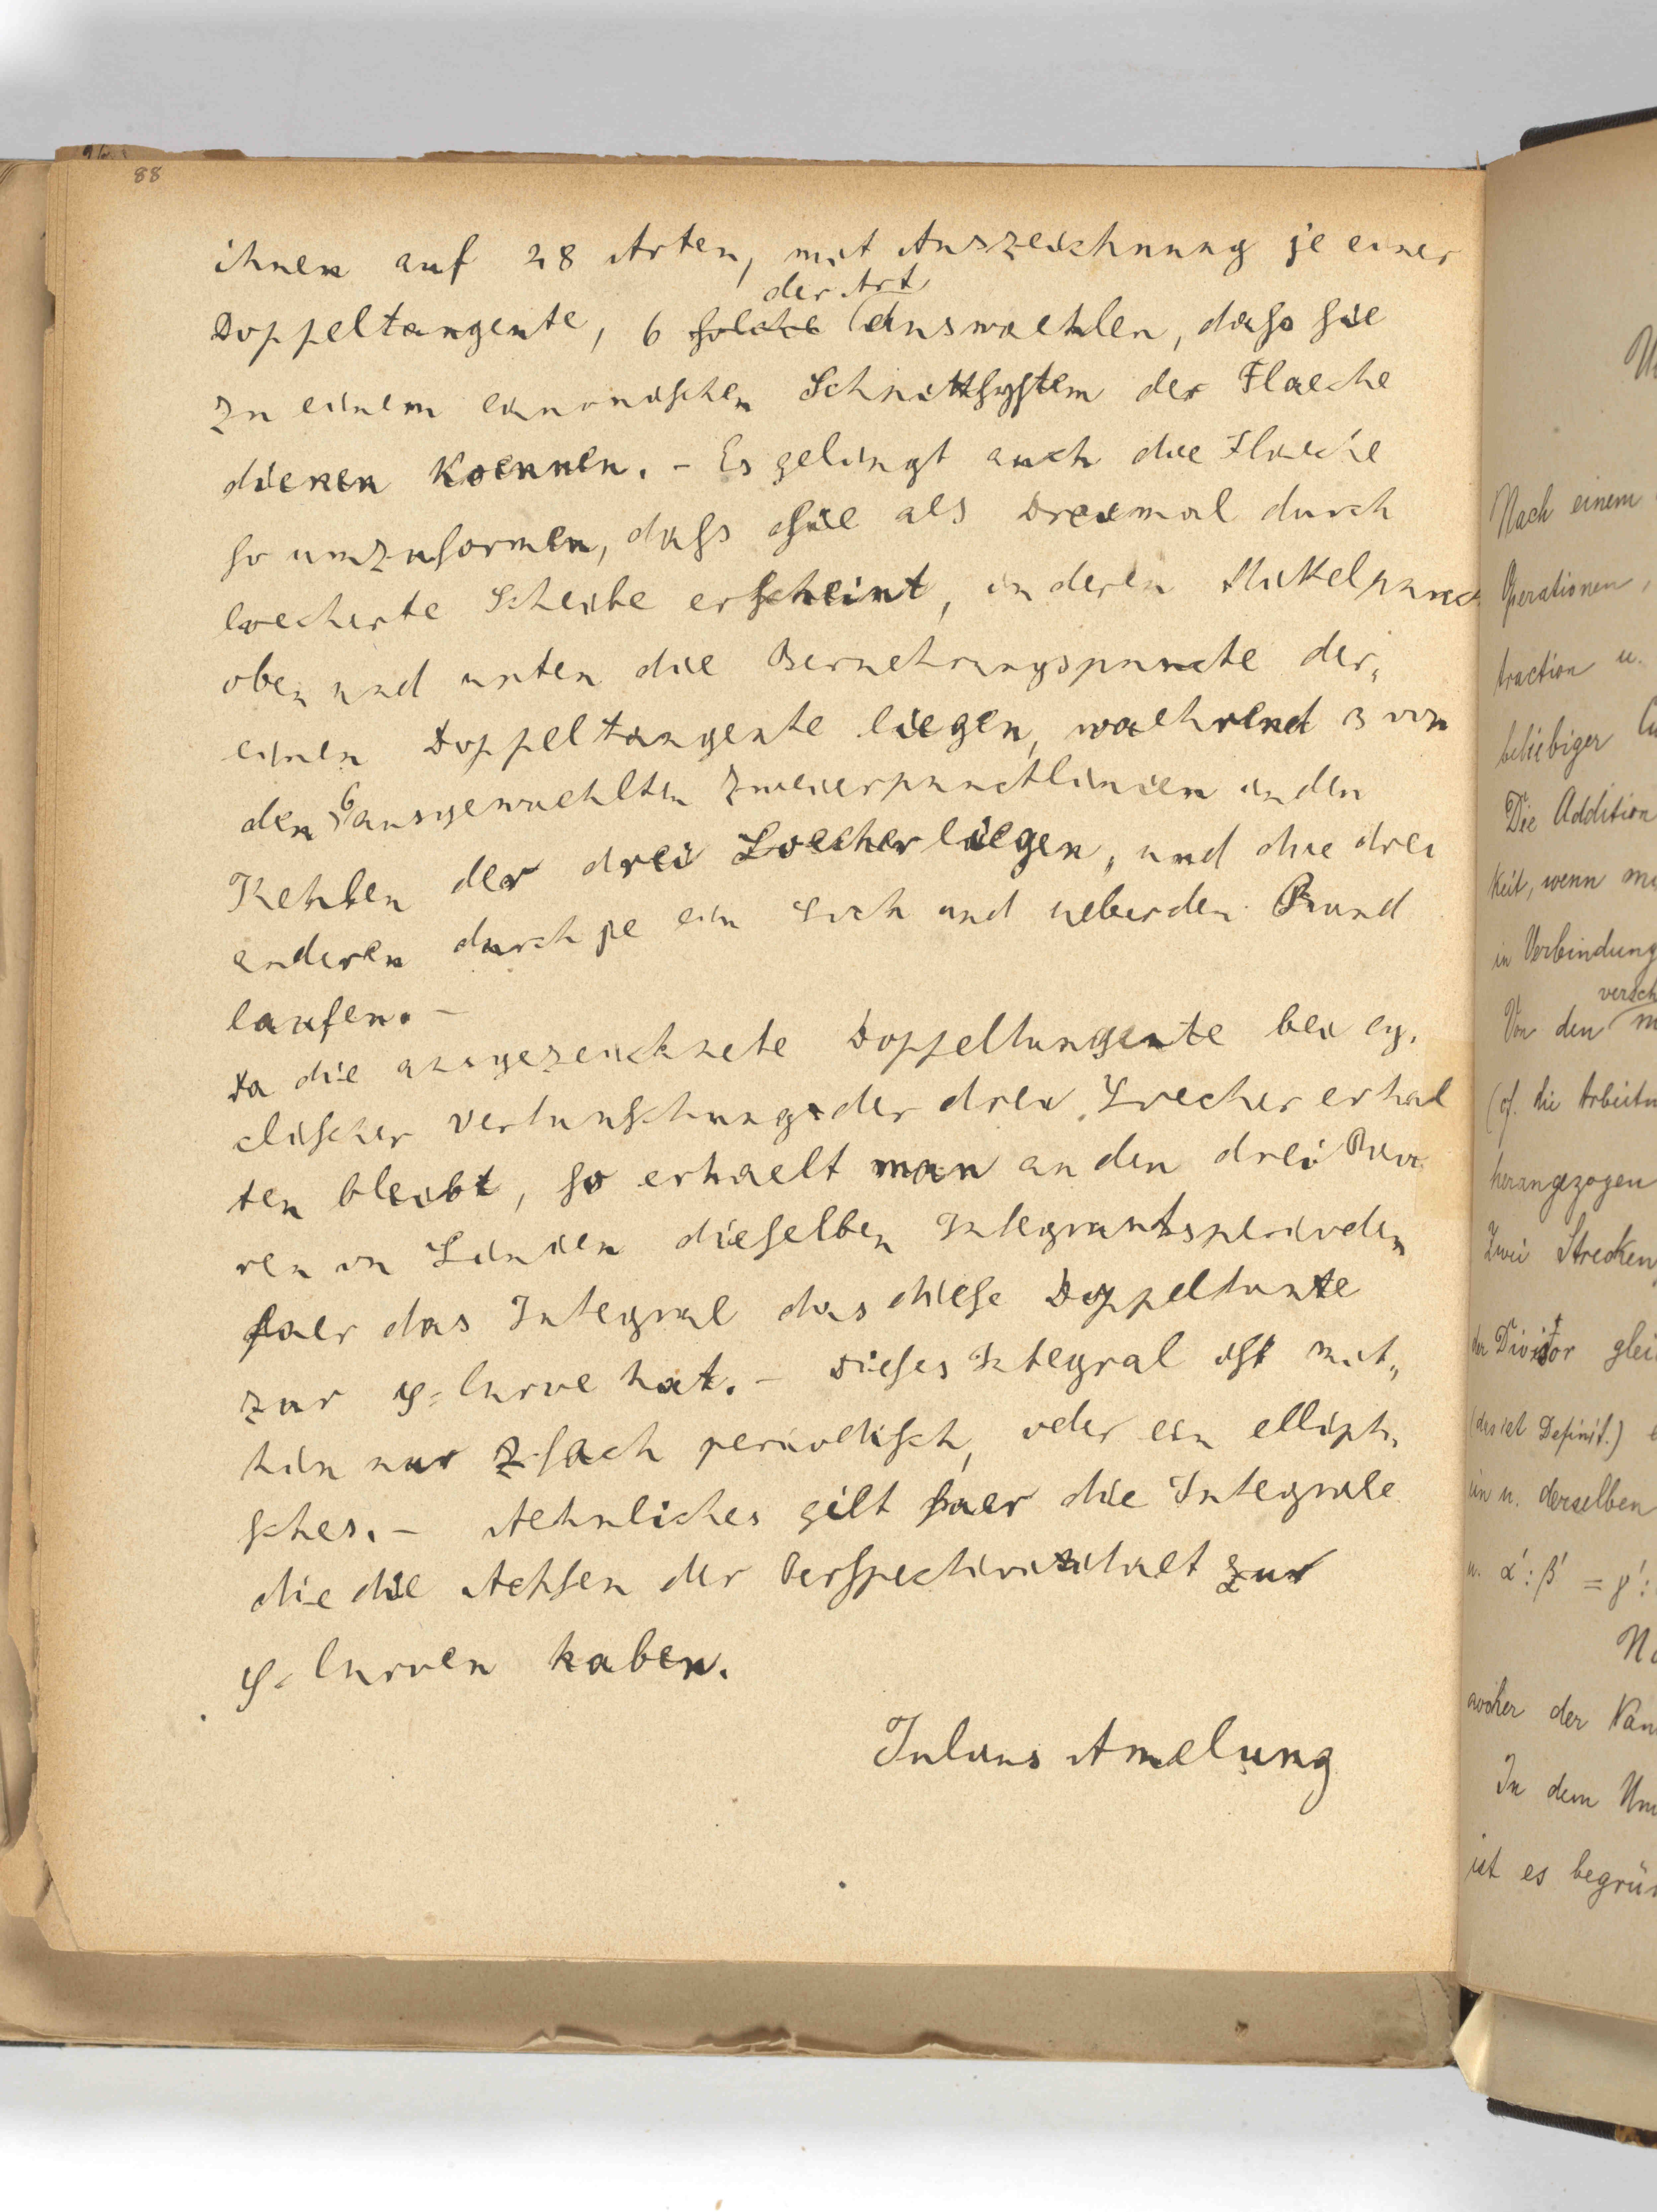 88
ihnen auf 28 Arten, mit Auszeichnung je einer
der Art
Doppeltangente, 6 solche auswaehlen, dass sie
zu einem canonischen Schnittsystem der Flaeche
dienen koennen. – Es gelingt auch die Flaeche
so umzuformen, dass sie als Dreimal durch
loecherte Scheibe erscheint, in deren Mittelpunct
oben und unten die Beruehrungspuncte der„
einen Doppeltangente liegen, waehrend 3 von
den 6 ausgewaehlten Zweierpunctlinien in den
Kehlen der drei Loecher liegen, und die drei
anderen durch je ein Loch und ueber den Rand
laufen. –
Da die ausgezeichnete Doppeltangente bei cy„
clischer Vertauschung der drei Loecher erhal
ten bleibt, so erhaelt man an den drei Paa
ren von Linien dieselben Integrantsperioden
fuer das Integral das diese Doppeltante
zur φ=Curve hat. – Dieses Integral ist mit„
hin nur 2-fach periodisch, oder ein ellipti„
sches. – Aehnliches gilt fuer die Integrale
die die Achsen der Perspectivitaet zur
φ=Curven haben.
Julius Amelung
Nach einem
Operationen,
traction u.
beliebiger
Die Addition
keit, wenn
in Verbindung
versch
Von den
(cf. die Arbeiten
herangezogen
Zwei Strecken
der Divisor
(das ist Definit.)
ein u. derselben
u. α':β' = γ':
woher der
In dem
ist es